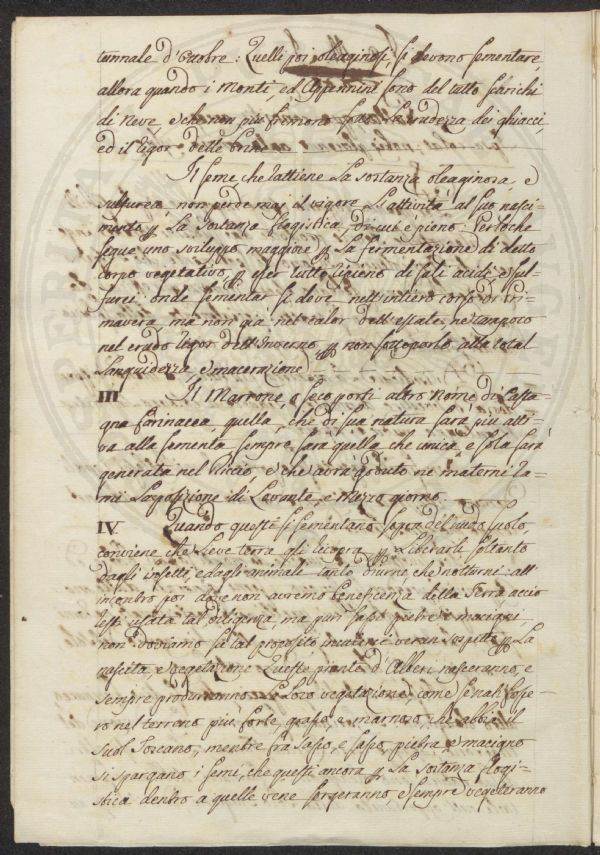 tunnale d'Ottobre: Quelli poi oleaginosi, si devono sementare
allora quando i Monti, ed Appennini sono del tutto scarichi
di Neve, e che non più fremono la crudezza dei ghiacci,
ed il rigor delle brine.
Il seme che ratiene la sostanza oleaginosa, e
sulfurea non perde mai il vigore l'attività al suo nasci-
mento p la sostanza flogistica, di cui è pieno. Per loche
segue uno sviluppo maggiore p la fermentazione di detto
corpo vegetativo, p esser tutto ripieno di sali acidi, e sul-
furei: onde sementar si deve nell'intiero corso di Pri-
mavera, ma non già nel calor dell'estate, ne tampoco
nel crudo rigor dell'Inverno p non sottoporlo alla total
languidezza e macerazione.
III Il Marrone, o seco porti altro Nome di Casta-
gna farinacea, quella, che di sua natura sarà più atti-
va alla sementa sempre sarà quella che unica, e sola sarà
generata nel riccio, e che avrà goduto ne materni Ra-
mi la posizione di Levante, e Mezzo giorno.
IV Quando queste si sementano sopra del nudo suolo,
conviene che lieve terra gli ricopra p liberarli soltanto
dagli insetti, e dagli animali tanto diurni, che notturni: all'
incontro poi dove non avremo beneficenza della Terra accio
resti usata tal diligenza, ma pur sassi pietre e macigni,
non doviamo fa tal proposito incutere verun sospetto p la
nascita, e vegetazione. Queste piante d'Alberi nasceranno, e
sempre produrranno la loro vegetazione, come se nati fosse-
ro nel terreno più forte, grasso, e marnoso, che abbia il
suol Toscano, mentre fra sasso, e sasso, pietra e macigno
si spargano i semi, che questi ancora p la sostanza flogi-
stica dentro a quelle vene sorgeranno, e sempre vegeteranno